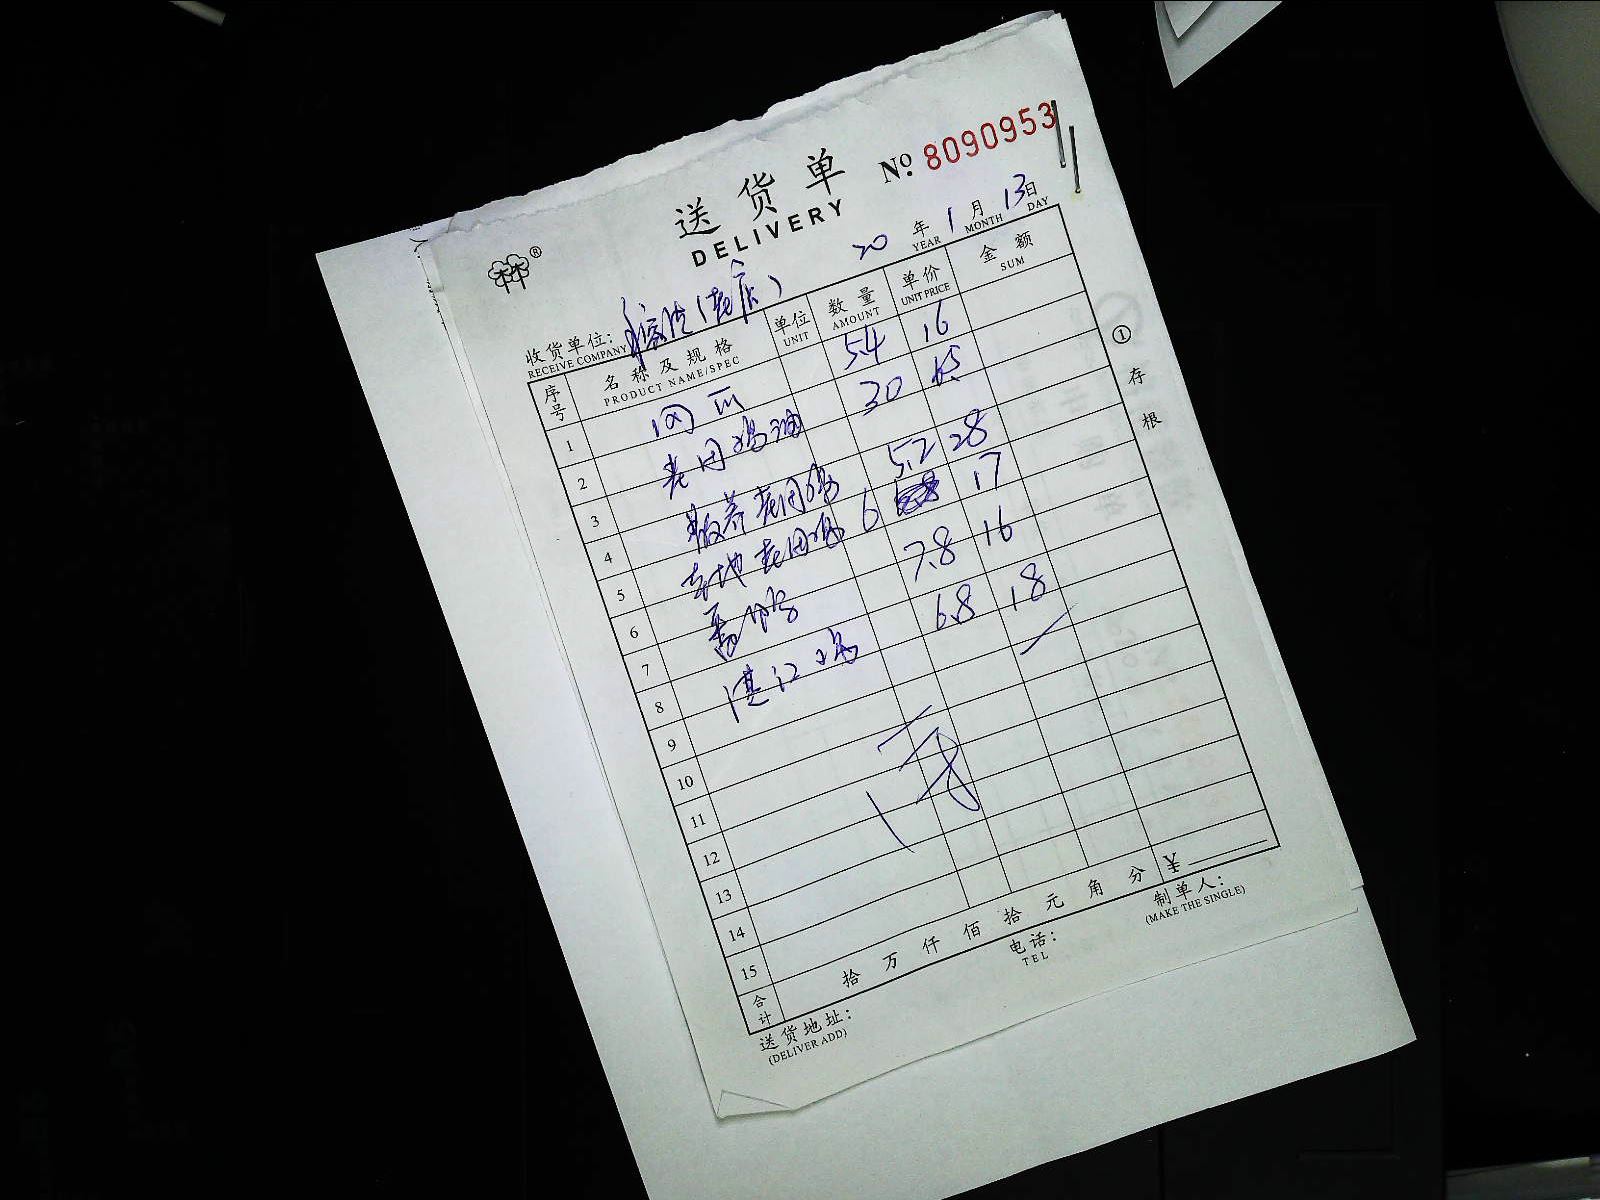 送货单 № 8090953
DELIVERY
20 年 1 月 13 日
YEAR MONTH DAY
®
收货单位: (老店)
RECEIVE COMPANY
序号 名称及规格 单位 数量 单价 金额
PRODUCT NAME/SPEC UNIT AMOUNT UNIT PRICE SUM
1 54 16
2 老母鸡油 30
3 散养老母鸡 5.2 28
4 本地老母鸡 6 17
5 7.8 16
6 湛江鸡 6.8 18
7
8
9
10
11
12
13
14
15
合计 拾 万 仟 佰 拾 元 角 分 ¥
送货地址: 电话: 制单人:
(DELIVER ADD) TEL (MAKE THE SINGLE)
① 存根